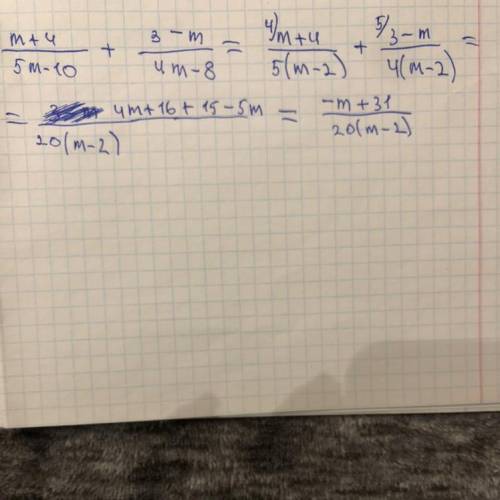 (m+4)/(5m-10) + (3-m)/(4m-8) = 4) (m+4)/(5(m-2)) + 5) (3-m)/(4(m-2)) =
= (4m+16+15-5m)/(20(m-2)) = (-m+31)/(20(m-2))